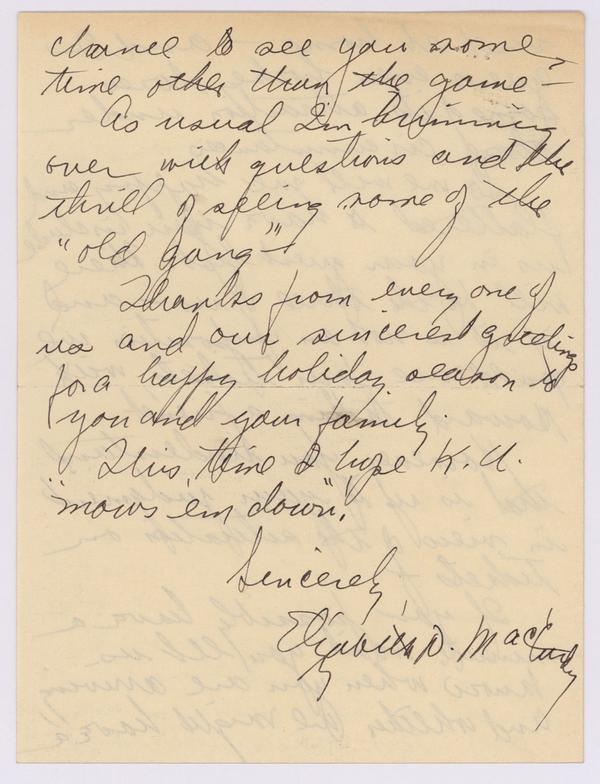 chance to see you some
time other than the game –
As usual I'm brimming
over with questions and the
thrill of seeing some of the
"old gang" –
Thanks from every one of
us and our sincerest greetings
for a happy holiday season to
you and your family.
This time I hope K. U.
"mows em down".
Sincerely,
Elizabeth D.